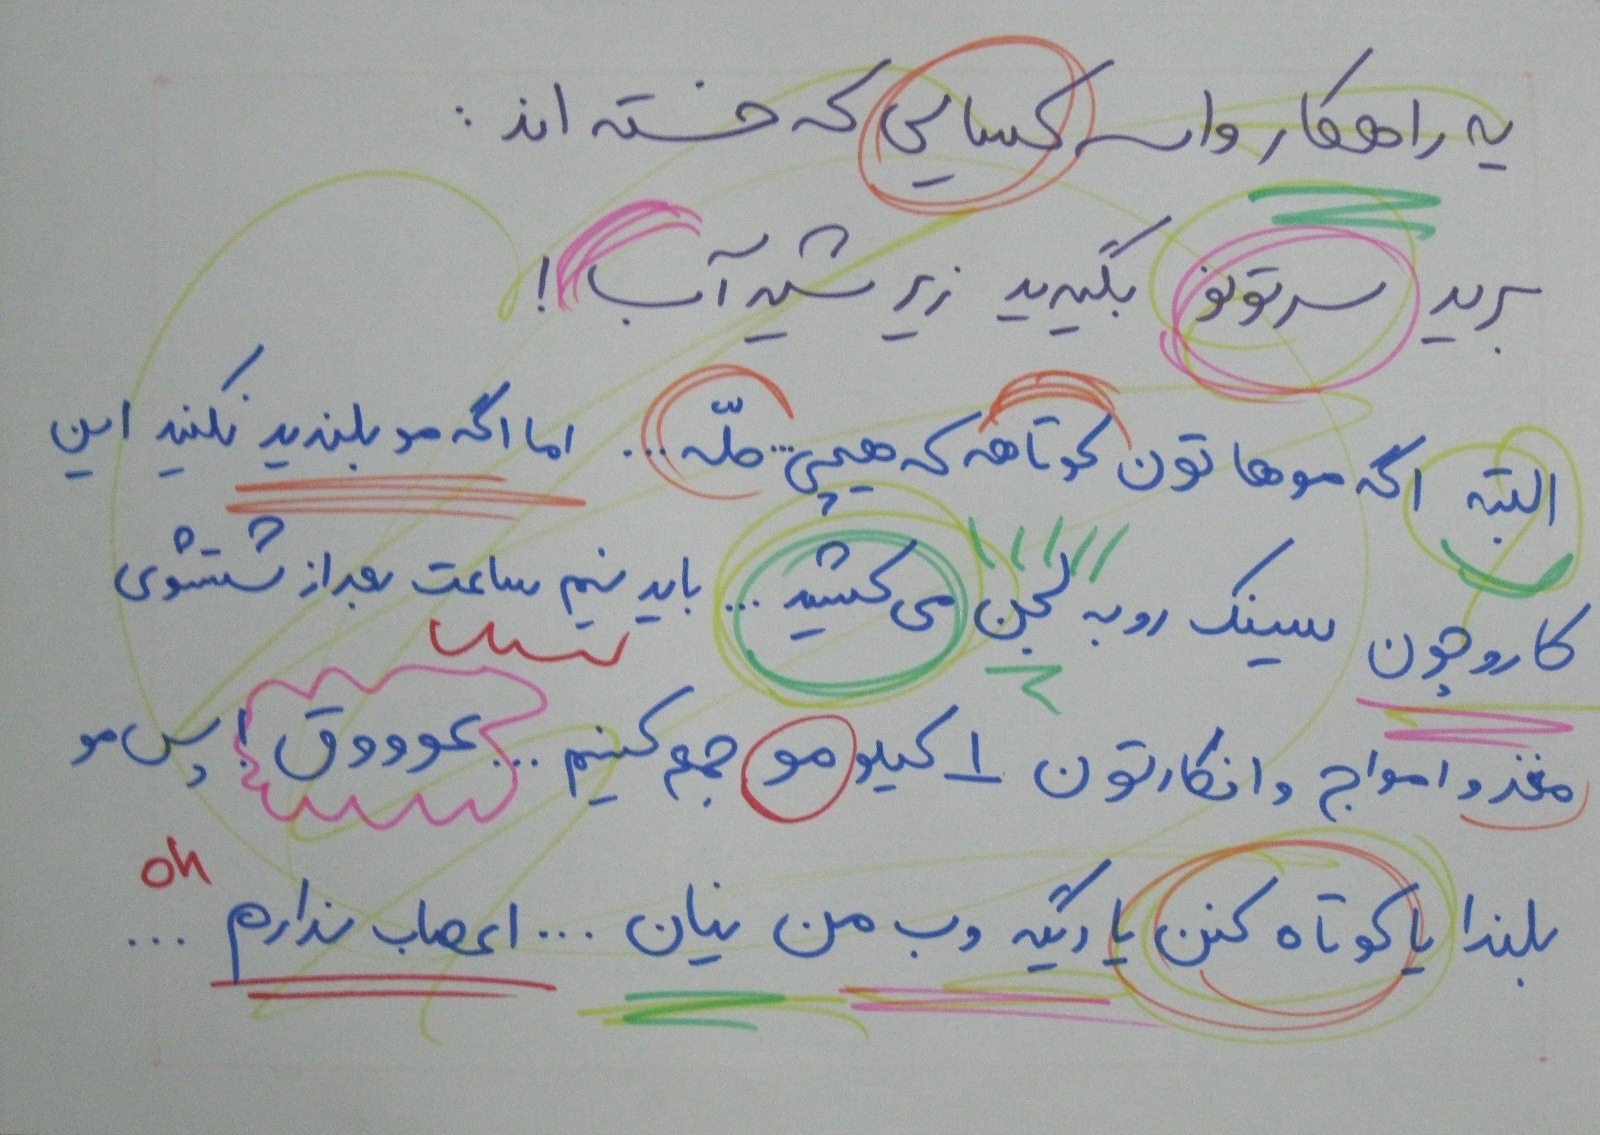 یه راهکار واسه کسایی که خسته اند :
برید سرتونو بگیرید زیر شیر آب !
البته اگه موهاتون کوتاهه که هیچی... حلّه ... اما اگه مو بلندید نکنید این
کارو چون سینک رو به لجن می کشید ... باید نیم ساعت بعد از شستشوی
مغز و امواج و افکارتون ۱ کیلو مو جمع کنیم ... عوووق ! پس مو
بلندا یا کوتاه کنن یا دیگه وب من نیان ... اعصاب ندارم ...
oh